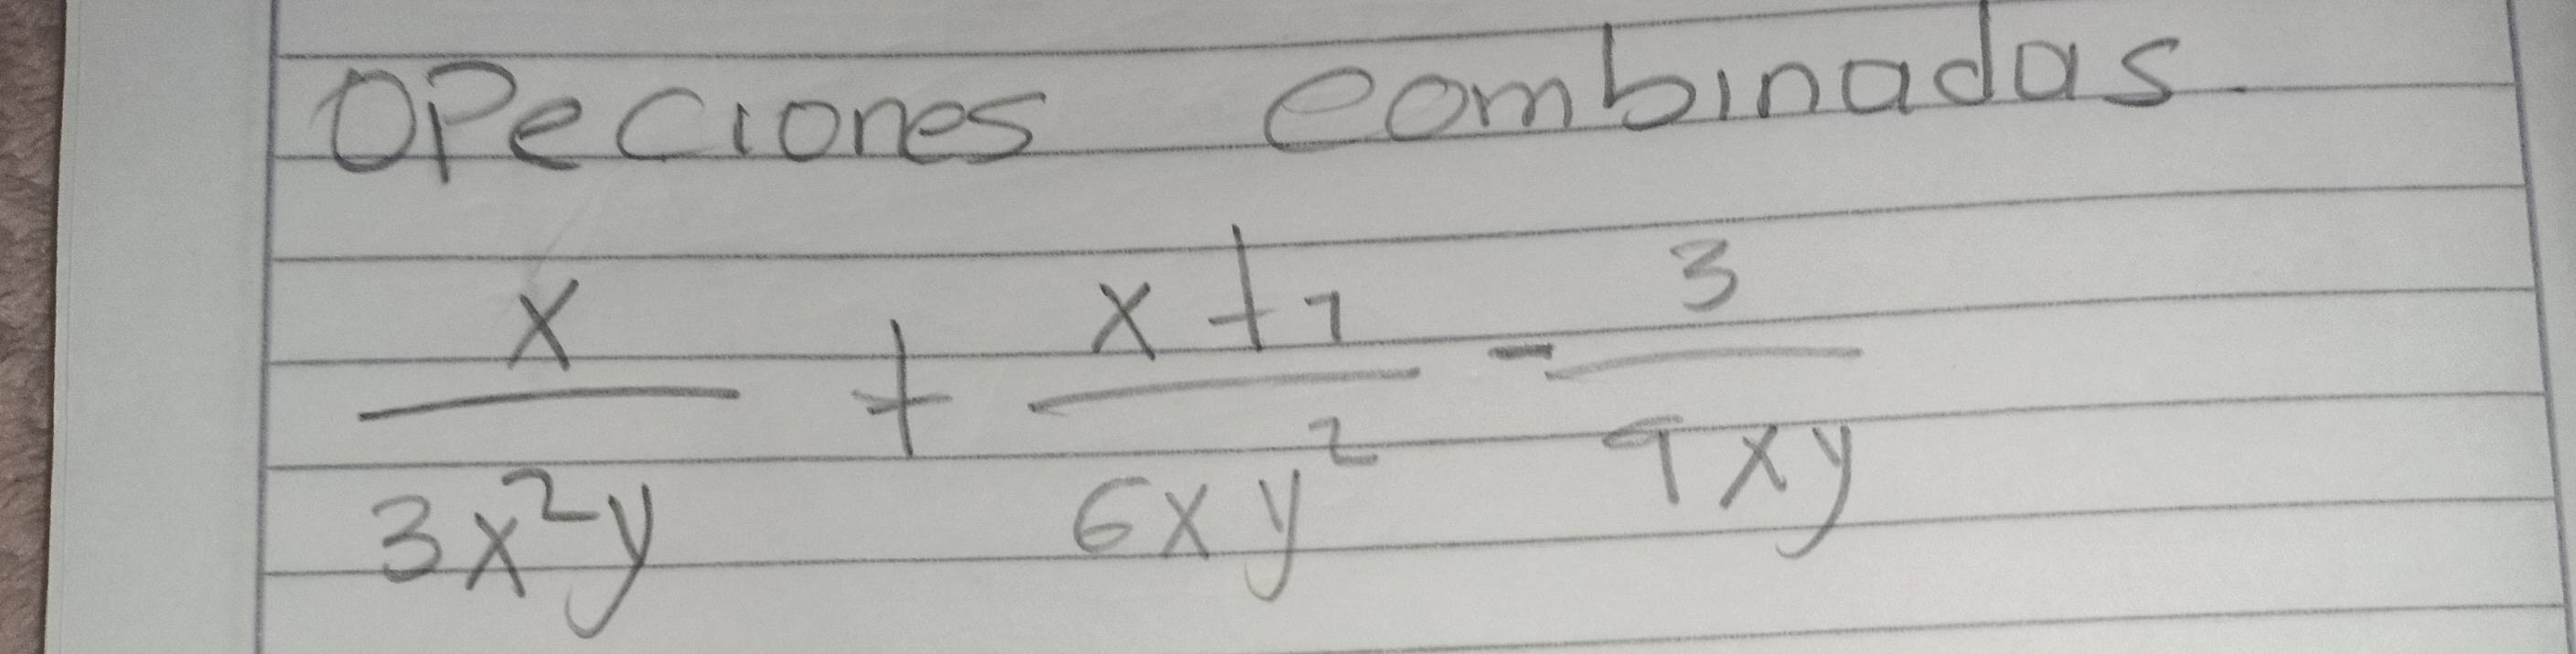 OPeciones combinadas.
x/3x²y + x+1/6xy² - 3/9xy